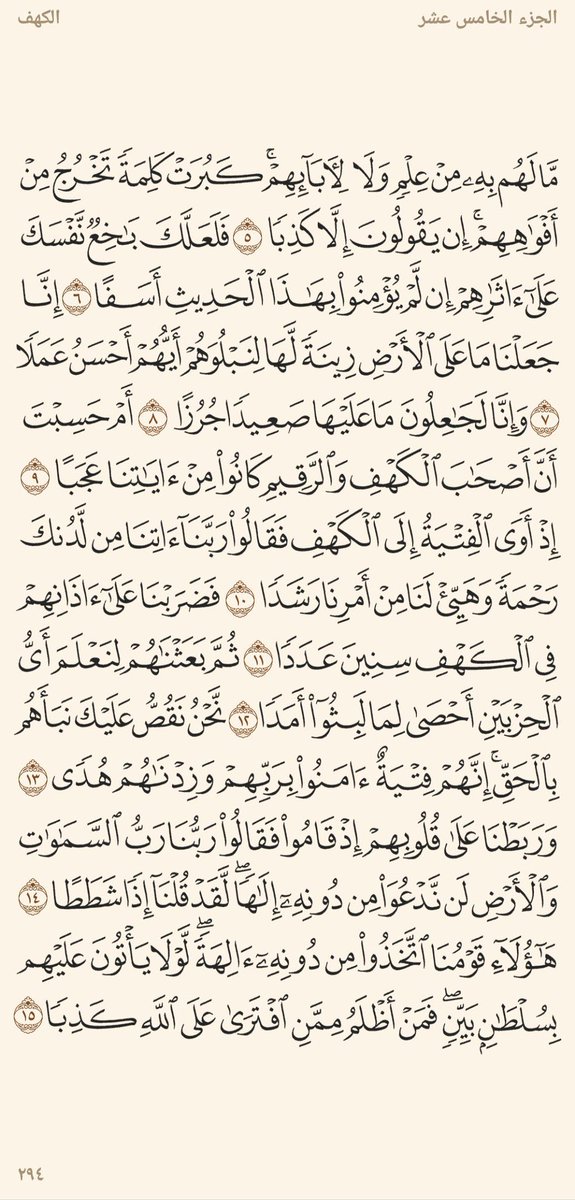 الجزء الخامس عشر
الكهف
مَّا لَهُم بِهِۦ مِنْ عِلْمٍ وَلَا لِأَبَآئِهِمْ ۚ كَبُرَتْ كَلِمَةً تَخْرُجُ مِنْ
أَفْوَٰهِهِمْ ۚ إِن يَقُولُونَ إِلَّا كَذِبًا ٥ فَلَعَلَّكَ بَٰخِعٌ نَّفْسَكَ
عَلَىٰٓ ءَاثَٰرِهِمْ إِن لَّمْ يُؤْمِنُوا۟ بِهَٰذَا ٱلْحَدِيثِ أَسَفًا ٦ إِنَّا
جَعَلْنَا مَا عَلَى ٱلْأَرْضِ زِينَةً لَّهَا لِنَبْلُوَهُمْ أَيُّهُمْ أَحْسَنُ عَمَلًا
٧ وَإِنَّا لَجَٰعِلُونَ مَا عَلَيْهَا صَعِيدًا جُرُزًا ٨ أَمْ حَسِبْتَ
أَنَّ أَصْحَٰبَ ٱلْكَهْفِ وَٱلرَّقِيمِ كَانُوا۟ مِنْ ءَايَٰتِنَا عَجَبًا ٩
إِذْ أَوَى ٱلْفِتْيَةُ إِلَى ٱلْكَهْفِ فَقَالُوا۟ رَبَّنَآ ءَاتِنَا مِن لَّدُنكَ
رَحْمَةً وَهَيِّئْ لَنَا مِنْ أَمْرِنَا رَشَدًا ١٠ فَضَرَبْنَا عَلَىٰٓ ءَاذَانِهِمْ
فِى ٱلْكَهْفِ سِنِينَ عَدَدًا ١١ ثُمَّ بَعَثْنَٰهُمْ لِنَعْلَمَ أَىُّ
ٱلْحِزْبَيْنِ أَحْصَىٰ لِمَا لَبِثُوٓا۟ أَمَدًا ١٢ نَّحْنُ نَقُصُّ عَلَيْكَ نَبَأَهُم
بِٱلْحَقِّ ۚ إِنَّهُمْ فِتْيَةٌ ءَامَنُوا۟ بِرَبِّهِمْ وَزِدْنَٰهُمْ هُدًى ١٣
وَرَبَطْنَا عَلَىٰ قُلُوبِهِمْ إِذْ قَامُوا۟ فَقَالُوا۟ رَبُّنَا رَبُّ ٱلسَّمَٰوَٰتِ
وَٱلْأَرْضِ لَن نَّدْعُوَا۟ مِن دُونِهِۦٓ إِلَٰهًا ۖ لَّقَدْ قُلْنَآ إِذًا شَطَطًا ١٤
هَٰٓؤُلَآءِ قَوْمُنَا ٱتَّخَذُوا۟ مِن دُونِهِۦٓ ءَالِهَةً ۖ لَّوْلَا يَأْتُونَ عَلَيْهِم
بِسُلْطَٰنٍۭ بَيِّنٍ ۖ فَمَنْ أَظْلَمُ مِمَّنِ ٱفْتَرَىٰ عَلَى ٱللَّهِ كَذِبًا ١٥
٢٩٤